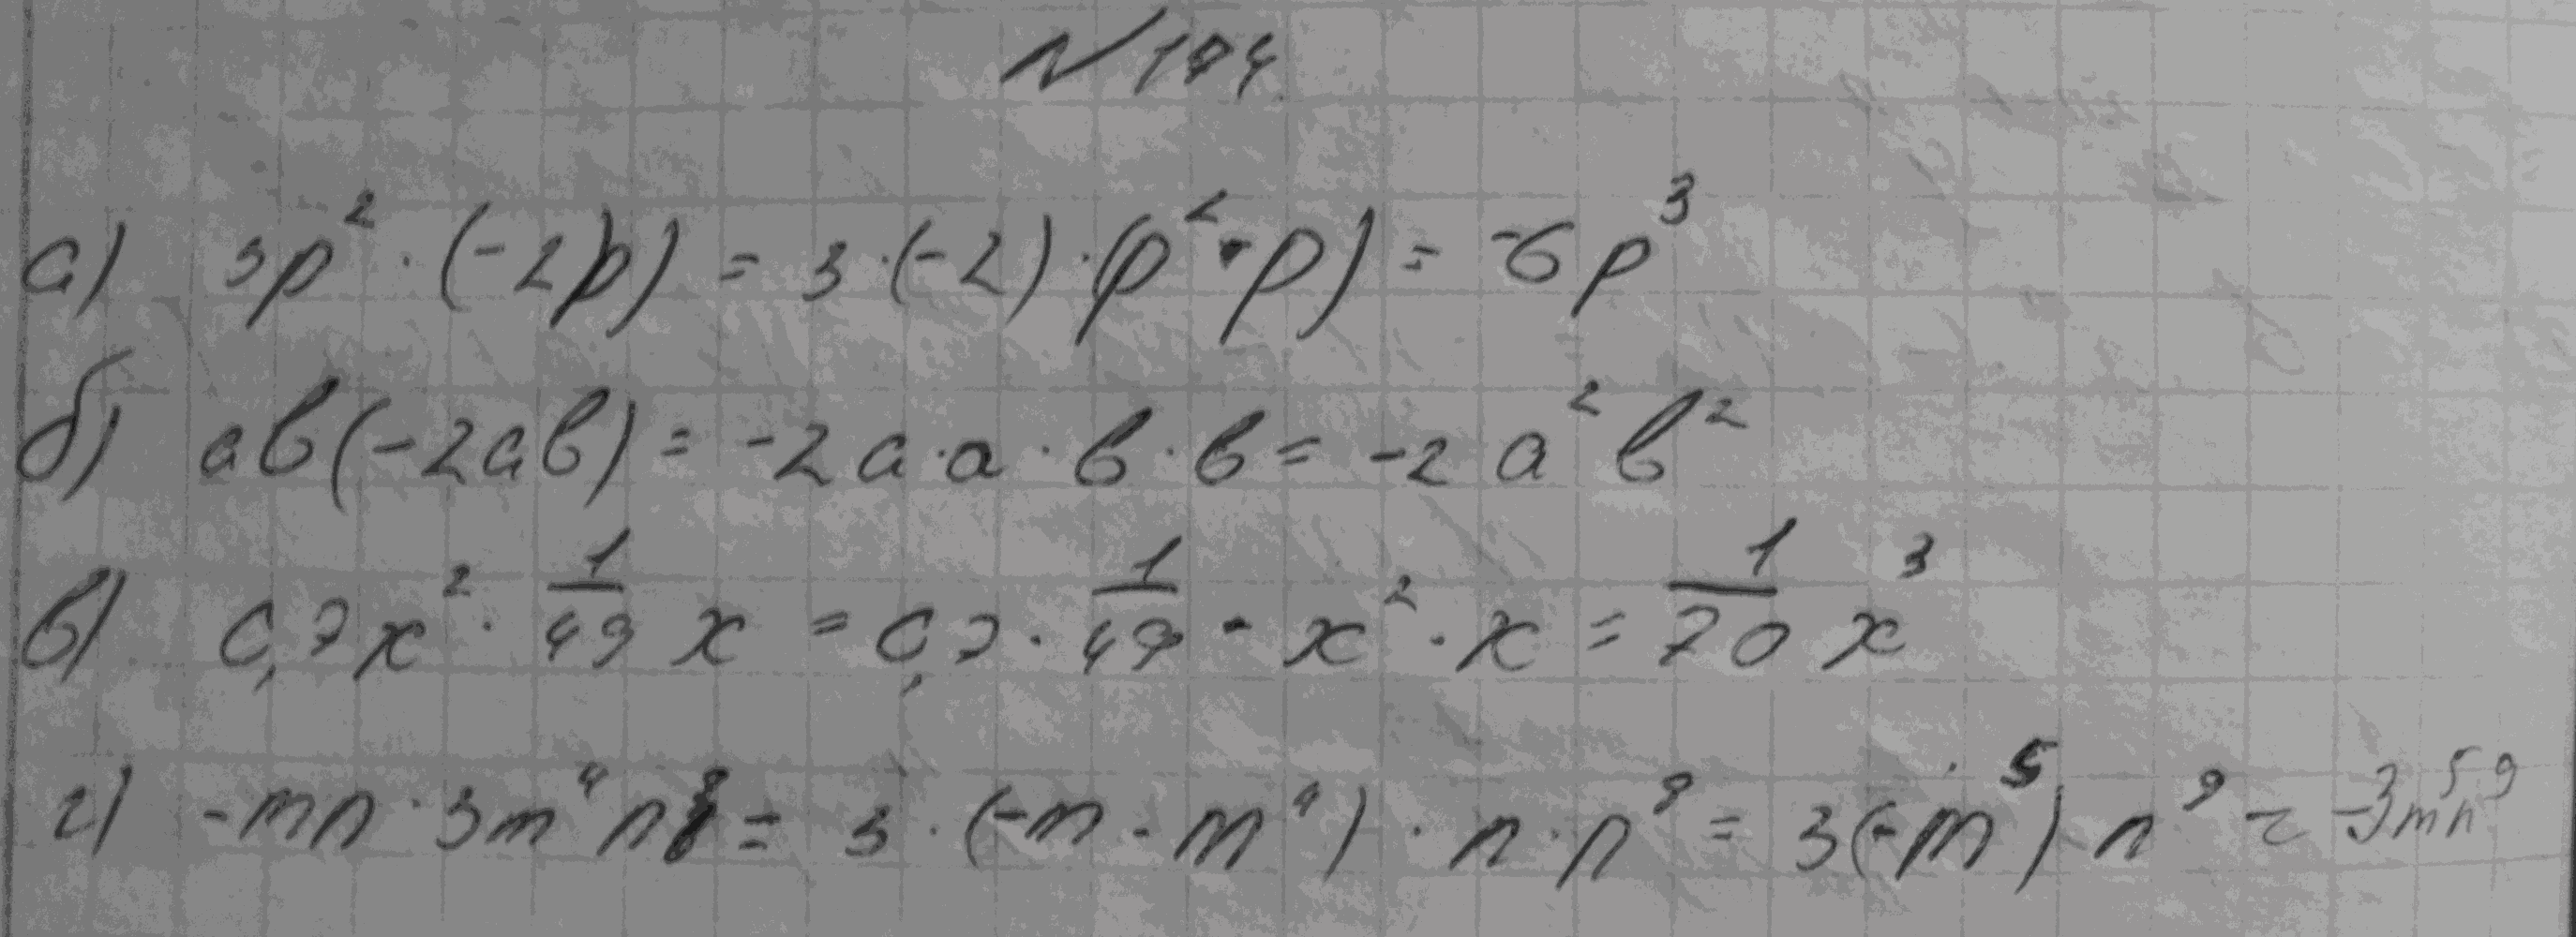 № 174
а) 3p² · (-2p) = 3 · (-2) · (p² · p) = -6p³
б) ab(-2ab) = -2a · a · b · b = -2a²b²
в) 0,7x² · 1/49 x = 0,7 · 1/49 · x² · x = 1/70 x³
г) -mn · 3m⁴n⁸ = 3 · (-m · m⁴) · n · n⁸ = 3(-m⁵) n⁹ = -3m⁵n⁹